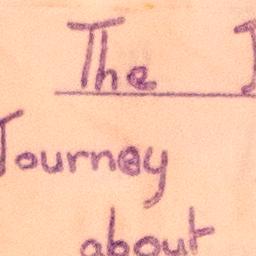 The
Journey
about